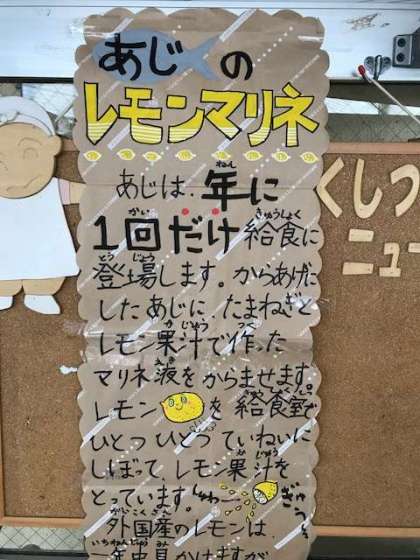 あじの
レモンマリネ
あじは、年に
1回だけ給食に
登場します。からあげに
したあじに、たまねぎと
レモン果汁で作った
マリネ液をからませます。
レモンを給食室で
ひとつひとつていねいに
しぼって、レモン果汁を
とっています。
ぎゅっ
外国産のレモンは、
一年中見かけますが
くしつ
ニュー